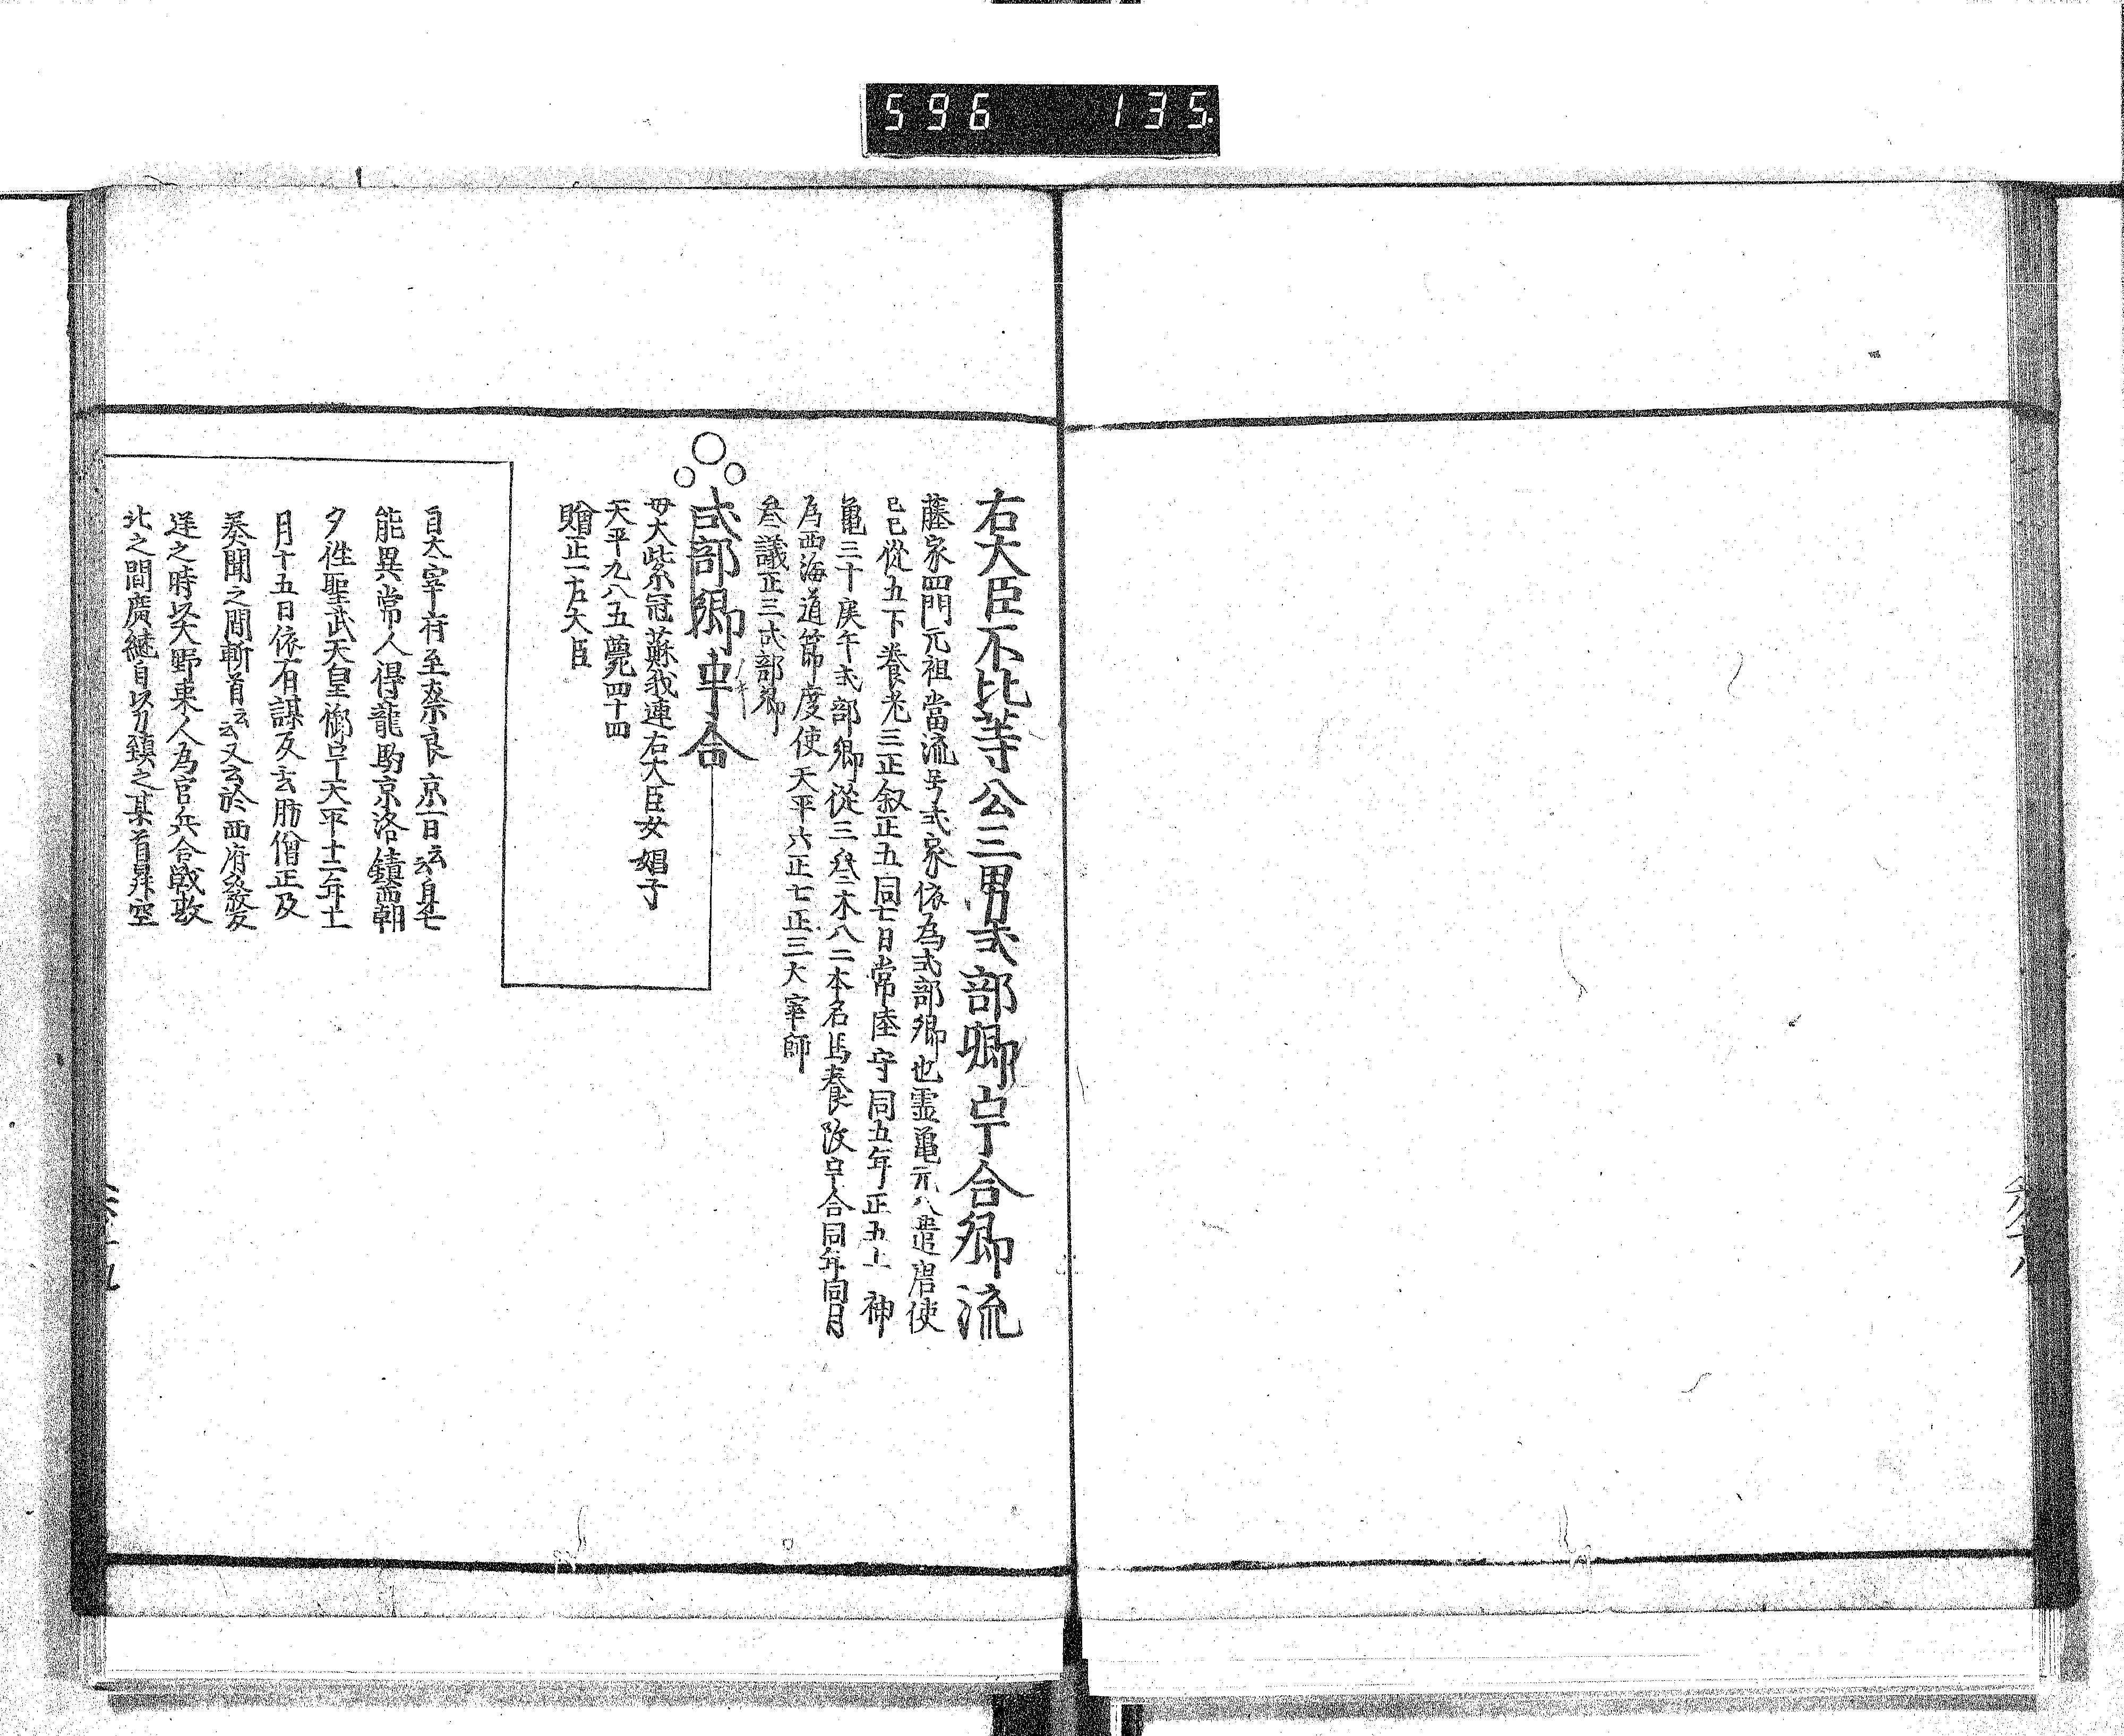 596 135
右大臣不比等公三男式部卿宇合卿流
藤家四門元祖當流号式家依為式部卿也霊亀元八遣唐使
己巳從五下養老三正叙正五同七日常陸守同五年正五上神
亀三十庚午式部卿從三叅木八二本名馬養改宇合同年同月
為西海道節度使天平六正七正三大宰帥
叅議正三式部卿
式部卿宇合
母大紫冠蘇我連右大臣女娼子
天平九八五薨四十四
贈正一左大臣
自大宰府至奈良京一日云云身七
能異常人得龍駒京洛鎮西朝
夕徃聖武天皇御宇天平十二年十一
月十五日依有謀反玄肪僧正及
奏聞之間斬首云云又云於西府發
逆之時以大野東人為官兵合戦敗
北之間廣継自以刀鎮之某首昇空